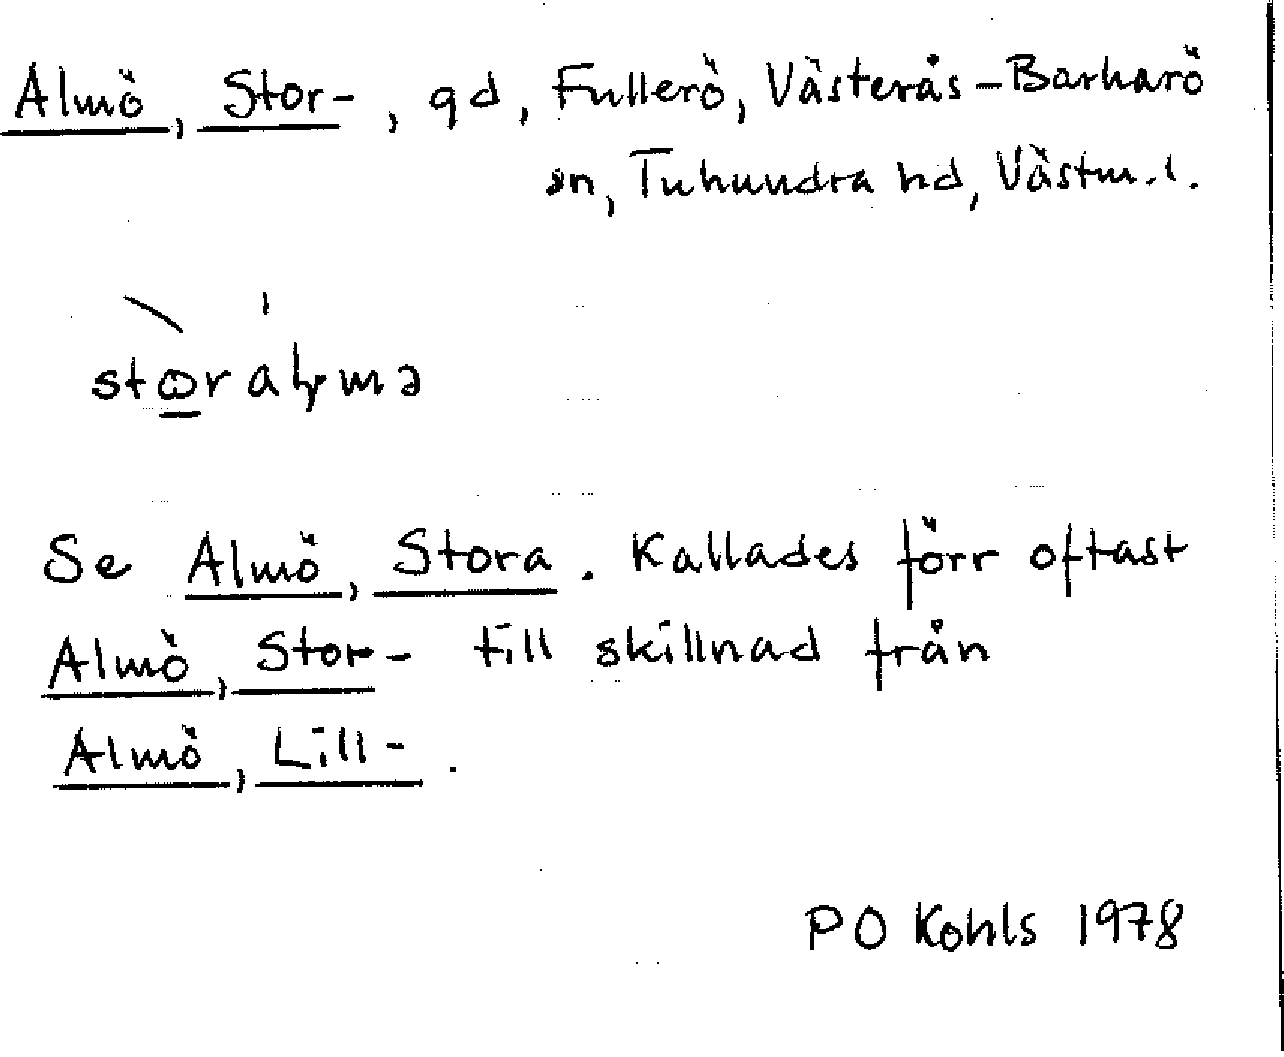 Almö, Stor-, gd, Fullerö, Västerås-Barkarö
sn, Tuhundra hd, Västm.l.
Se Almö, Stora. Kallades förr oftast
Almö, Stor- till skillnad från
Almö, Lill-.
PO Kohls 1978